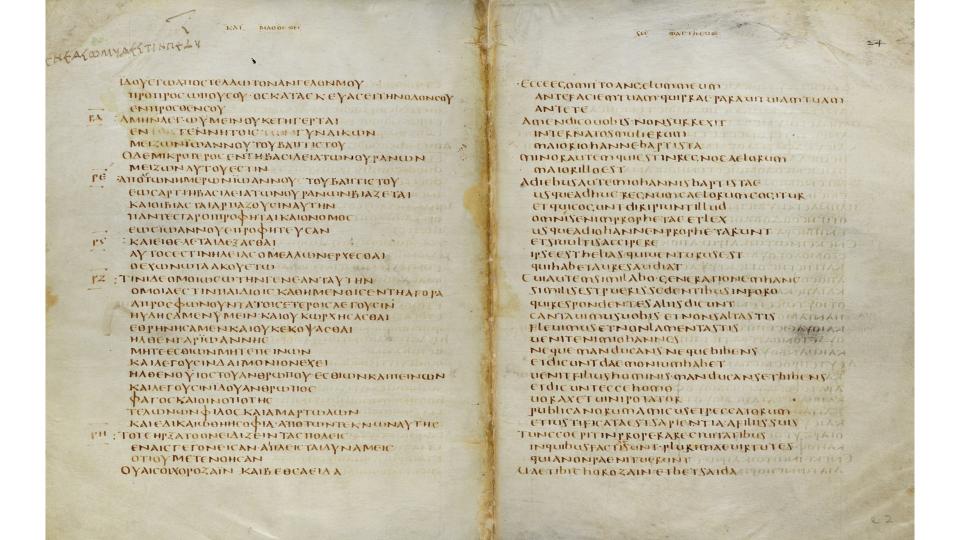 ΚΑΤ ΜΑΘΘΕΟΝ
ΙΔΟΥΕΓΩΑΠΟΣΤΕΛΛΩΤΟΝΑΓΓΕΛΟΝΜΟΥ
ΠΡΟΠΡΟΣΩΠΟΥΣΟΥ·ΟΣΚΑΤΑΣΚΕΥΑΣΕΙΤΗΝΟΔΟΝΣΟΥ
ΕΝΠΡΟΣΘΕΝΣΟΥ
ΑΜΗΝΛΕΓΩΥΜΕΙΝΟΥΚΕΓΗΓΕΡΤΑΙ
ΕΝ ΓΕΝΝΗΤΟΙΣ ΓΥΝΑΙΚΩΝ
ΜΕΙΖΩΝΙΩΑΝΝΟΥΤΟΥΒΑΠΤΙΣΤΟΥ
ΟΔΕΜΙΚΡΟΤΕΡΟΣΕΝΤΗΒΑΣΙΛΕΙΑΤΩΝΟΥΡΑΝΩΝ
ΜΕΙΖΩΝΑΥΤΟΥΕΣΤΙΝ
ΡΕ ΑΠΟΤΩΝΗΜΕΡΩΝΙΩΑΝΝΟΥ ΤΟΥΒΑΠΤΙΣΤΟΥ
ΕΩΣΑΡΤΙΗΒΑΣΙΛΕΙΑΤΩΝΟΥΡΑΝΩΝΒΙΑΖΕΤΑΙ
ΚΑΙΟΙΒΙΑΣΤΑΙΑΡΠΑΖΟΥΣΙΝΑΥΤΗΝ
ΠΑΝΤΕΣΓΑΡΟΙΠΡΟΦΗΤΑΙΚΑΙΟΝΟΜΟΣ
ΕΩΣΙΩΑΝΝΟΥΕΠΡΟΦΗΤΕΥΣΑΝ
ΡS ΚΑΙΕΙΘΕΛΕΤΑΙΔΕΞΑΣΘΑΙ
ΑΥΤΟΣΕΣΤΙΝΗΛΕΙΑΣΟΜΕΛΛΩΝΕΡΧΕΣΘΑΙ
ΟΕΧΩΝΩΤΑΑΚΟΥΕΤΩ
ΡΖ ΤΙΝΙΔΕΟΜΟΙΩΣΩΤΗΝΓΕΝΕΑΝΤΑΥΤΗΝ
ΟΜΟΙΑΕΣΤΙΝΠΑΙΔΙΟΙΣΚΑΘΗΜΕΝΟΙΣΕΝΤΗΑΓΟΡΑ
ΑΠΡΟΣΦΩΝΟΥΝΤΑΤΟΙΣΕΤΕΡΟΙΣΛΕΓΟΥΣΙΝ
ΗΥΛΗΣΑΜΕΝΥΜΕΙΝΚΑΙΟΥΚΩΡΧΗΣΑΣΘΑΙ
ΕΘΡΗΝΗΣΑΜΕΝΚΑΙΟΥΚΕΚΟΨΑΣΘΑΙ
ΗΛΘΕΝΓΑΡΙΩΑΝΝΗΣ
ΜΗΤΕΕΣΘΙΩΝΜΗΤΕΠΕΙΝΩΝ
ΚΑΙΛΕΓΟΥΣΙΝΔΑΙΜΟΝΙΟΝΕΧΕΙ
ΗΛΘΕΝΟΥΙΟΣΤΟΥΑΝΘΡΩΠΟΥΕΣΘΙΩΝΚΑΙΠΕΙΝΩΝ
ΚΑΙΛΕΓΟΥΣΙΝΙΔΟΥΑΝΘΡΩΠΟΣ
ΦΑΓΟΣΚΑΙΟΙΝΟΠΟΤΗΣ
ΤΕΛΩΝΩΝΦΙΛΟΣΚΑΙΑΜΑΡΤΩΛΩΝ
ΚΑΙΕΔΙΚΑΙΩΘΗΗΣΟΦΙΑ·ΑΠΟΤΩΝΤΕΚΝΩΝΑΥΤΗΣ
ΡΗ ΤΟΤΕΗΡΞΑΤΟΟΝΕΙΔΙΖΕΙΝΤΑΣΠΟΛΕΙΣ
ΕΝΑΙΣΓΕΓΟΝΕΙΣΑΝ·ΑΙΠΛΕΙΣΤΑΙΔΥΝΑΜΕΙΣ
ΟΤΙΟΥΜΕΤΕΝΟΗΣΑΝ
ΟΥΑΙΣΟΙΧΟΡΟΖΑΪΝ ΚΑΙΒΕΘΣΑΕΙΔΑ
24
ECCEEGOMITTOANGELUMMEUM
ANTEFACIEMTUAMQUIPRAEPARAVITUIAMTUAM
ANTETE
AMENDICOUOBIS·NONSURREXIT
INTERNATOSMULIERUM
MAIORIOHANNEBAPTISTA
MINORAUTEMQUIESTINREGNOCAELORUM
MAIORILLOEST
ADIEBUSAUTEMIOHANNISBAPTISTAE
USQUEADHUCREGNUMCAELORUMCOGITUR
ETQUICOGUNTDIRIPIUNTILLUD
OMNESENIMPROPHETAEETLEX
USQUEADIOHANNENPROPHETARUNT
ETSIUULTISACCIPERE
IPSEESTHELIASQUIUENTURUSEST
QUIHABETAURESAUDIAT
CUIAUTEMSIMILABOGENERATIONEMHANC
SIMILISESTPUERISSEDENTIBUSINFORO
QUIRESPONDENTESALIISDICUNT
CANTAUIMUSUOBISETNONSALTASTIS
PLEUIMUSETNONLAMENTASTIS
UENITENIMIOHANNES
NEQUEMANDUCANSNEQUEBIBENS
ETDICUNTDAEMONIUMHABET
UENITFILIUSHOMINISMANDUCANSETBIBENS
ETDICUNTECCEHOMO
UORAXETUINIPOTATOR
PUBLICANORUMAMICUSETPECCATORUM
ETIUSTIFICATAESTSAPIENTIAAFILIISSUIS
TUNCCOEPITINPROPERARECIUITATIBUS
INQUIBUSFACTISUNTPLURIMAEUIRTUTES
QUIANONPAENITUERUNT
UAETIBICHOROZAINETBETSAIDA